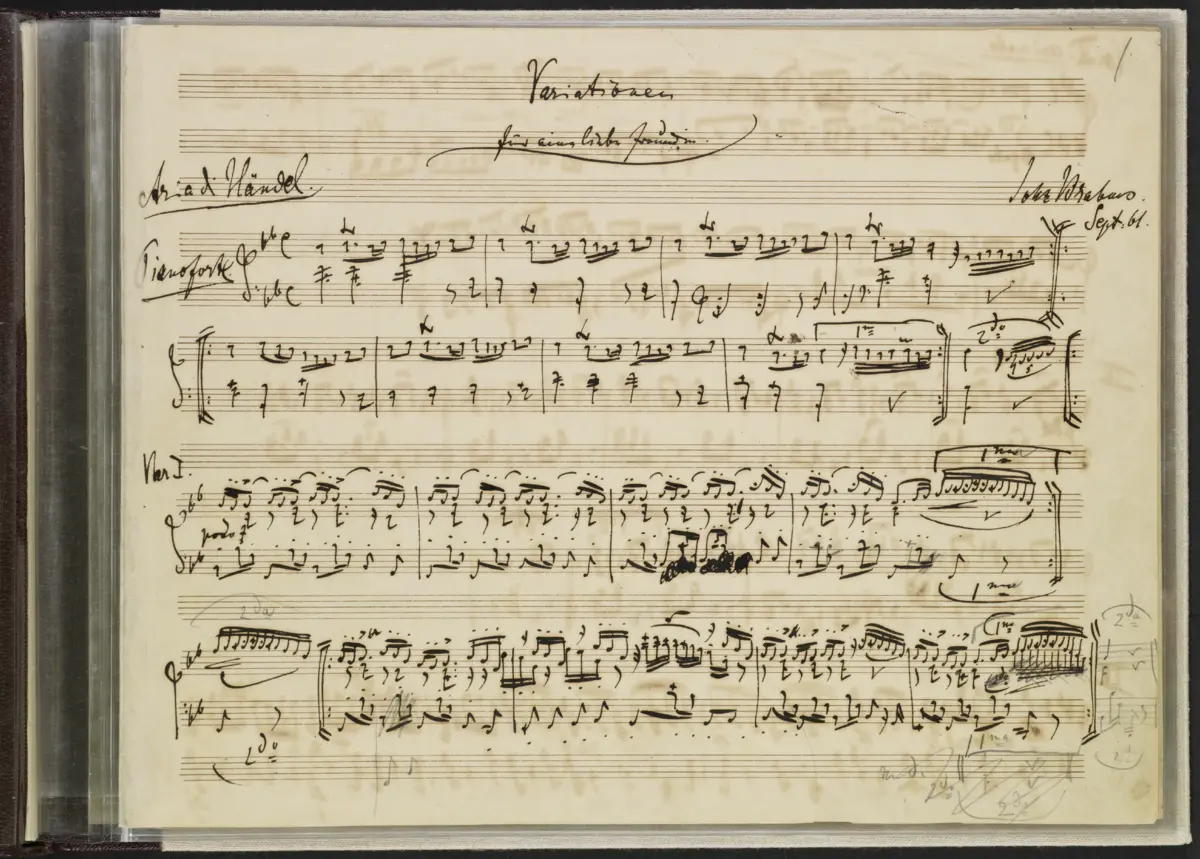 1
Variationen
für eine liebe Freundin.
Aria di Händel.
Joh Brahms.
Sept. 61.
Pianoforte
1ma
2do
Var I.
1ma
poco f
1ma
2da
1ma
2da
2do
11ma
2da
2da